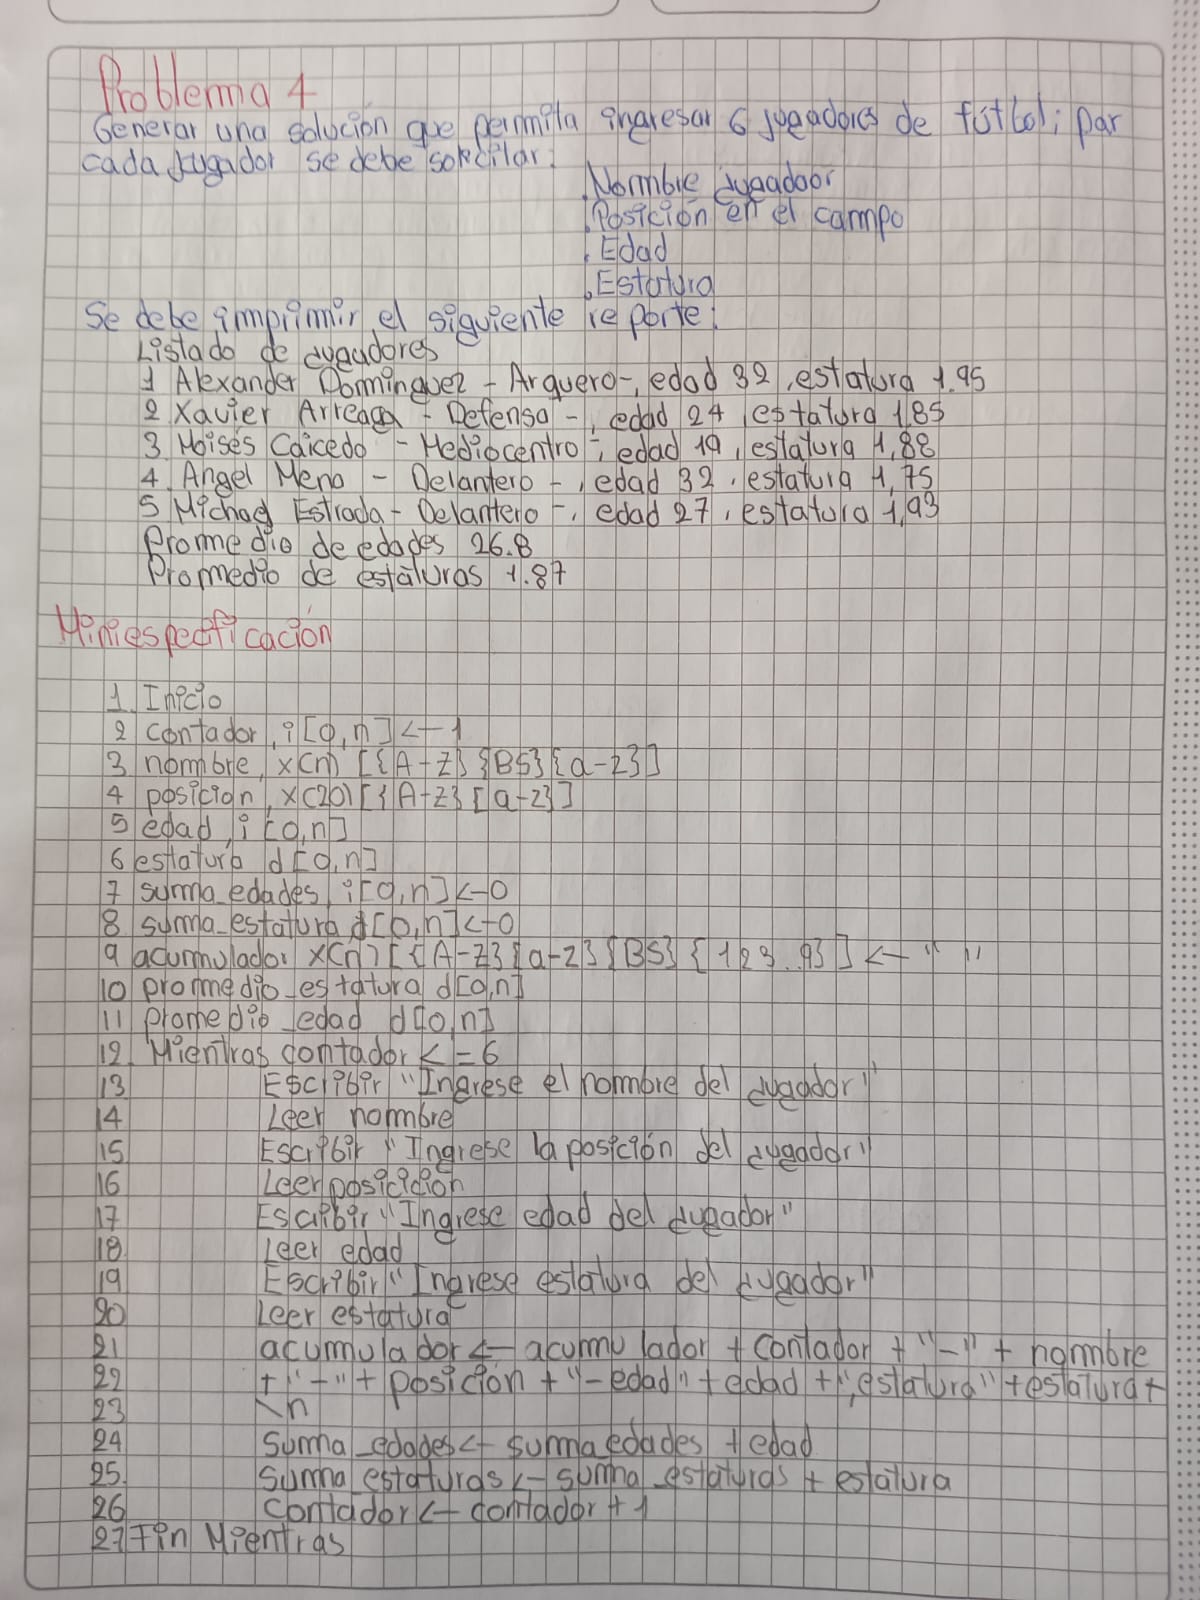 Problema 4
Generar una solución que permita ingresar 6 jugadores de fútbol; par
cada jugador se debe solicitar:
. Nombre jugador
. Posición en el campo
. Edad
. Estatura
Se debe imprimir el siguiente reporte:
Listado de jugadores
1 Alexander Dominguez - Arquero-, edad 32, estatura 1.95
2 Xavier Arreaga - Defensa -, edad 24, estatura 1,85
3 Moisés Caicedo - Mediocentro -, edad 19, estatura 1,88
4. Angel Mena - Delantero -, edad 32, estatura 1,75
5 Michael Estrada - Delantero -, edad 27, estatura 1,93
Promedio de edades 26.8
Promedio de estaturas 1.87
Miniespecificación
1. Inicio
2 contador, i [0,n] <- 1
3 nombre, x(n) [{A-Z} {BS} {a-z}]
4 posicion, x(20) [{A-Z} [a-z}]
5 edad, i [0,n]
6 estatura d [0,n]
7 suma_edades, i [0,n] <- 0
8 suma_estatura d [0,n] <- 0
9 acumulador x(n) [{A-Z} {a-z} {BS} {123..9}] <- " "
10 promedio_estatura d[0,n]
11 promedio_edad d[0,n]
12. Mientras contador <= 6
13 Escribir "Ingrese el nombre del jugador"
14 Leer nombre
15 Escribir "Ingrese la posición del jugador"
16 Leer posicición
17 Escribir "Ingrese edad del jugador"
18 Leer edad
19 Escribir "Ingrese estatura del jugador"
20 Leer estatura
21 acumulador <- acumulador + contador + "-" + nombre
22 + "-" + posicion + "-edad" + edad + ",estatura" + estatura +
23 \n
24 Suma_edades <- suma edades + edad
25. Suma_estaturas <- suma_estaturas + estatura
26 contador <- contador + 1
27 Fin Mientras